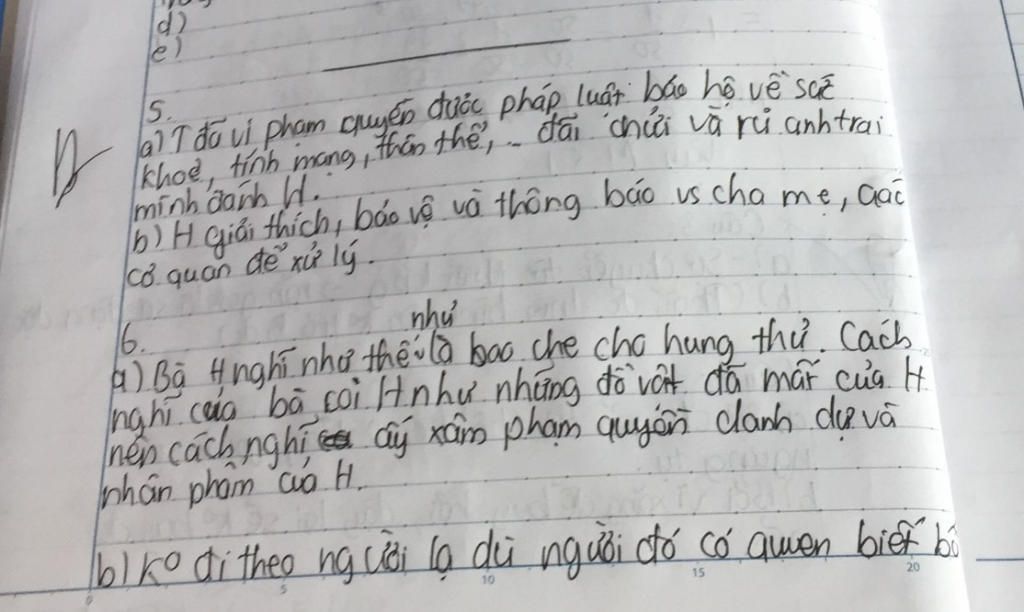 d)
e)
5.
a) T đã vi phạm quyền được pháp luật bảo hộ về sức
khoẻ, tính mạng, thân thể, ... đãi chửi và rủ anh trai
mình đánh H.
b) H giải thích, bảo vệ và thông báo vs cha mẹ, các
cơ quan để xử lý.
6.
như
a) Bà H nghĩ như thế là bao che cho hung thủ. Cách
nghĩ của bà coi H như những đồ vật đã mất của H
nên cách nghĩ ấy xâm phạm quyền danh dự và
nhân phẩm của H.
b) ko đi theo người lạ dù người đó có quen biết bố
5
10
15
20